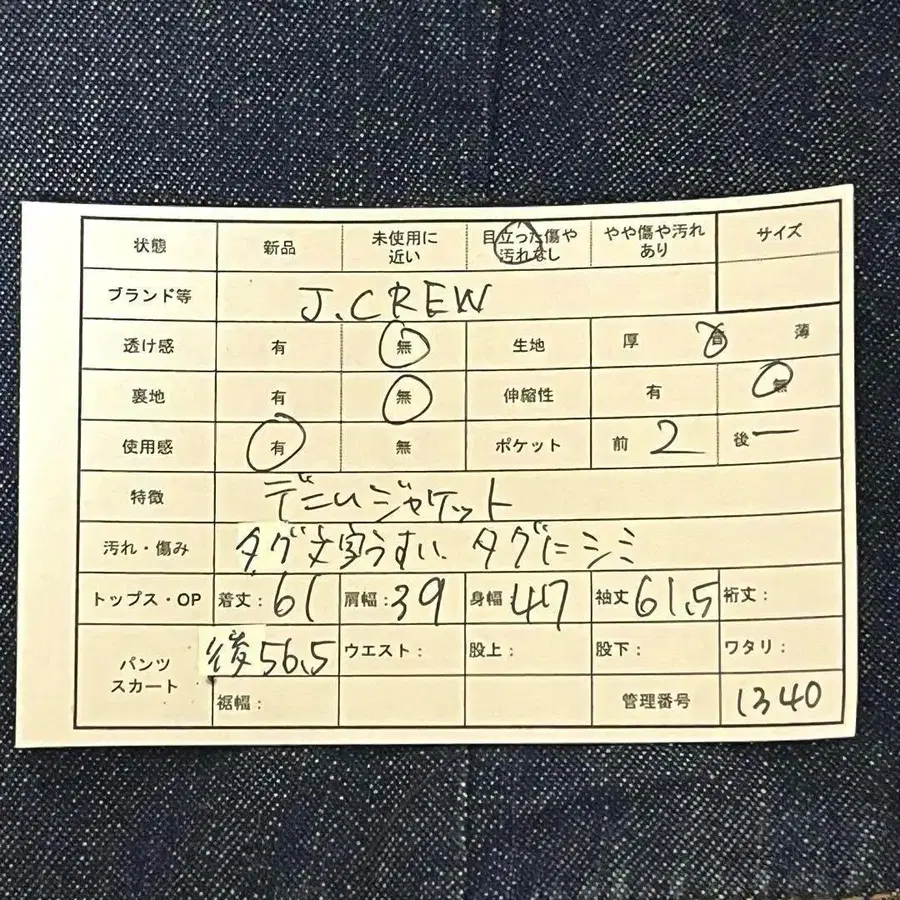 状態 新品 未使用に近い 目立った傷や汚れなし やや傷や汚れあり サイズ
ブランド等 J.CREW
透け感 有 無 生地 厚 普 薄
裏地 有 無 伸縮性 有 無
使用感 有 無 ポケット 前 2 後 ー
特徴 デニムジャケット
汚れ・傷み タグ文字うすい、タグにシミ
トップス・OP 着丈:61 肩幅:39 身幅47 袖丈61.5 裄丈:
パンツ スカート 後56.5 ウエスト: 股上: 股下: ワタリ:
裾幅: 管理番号 1340